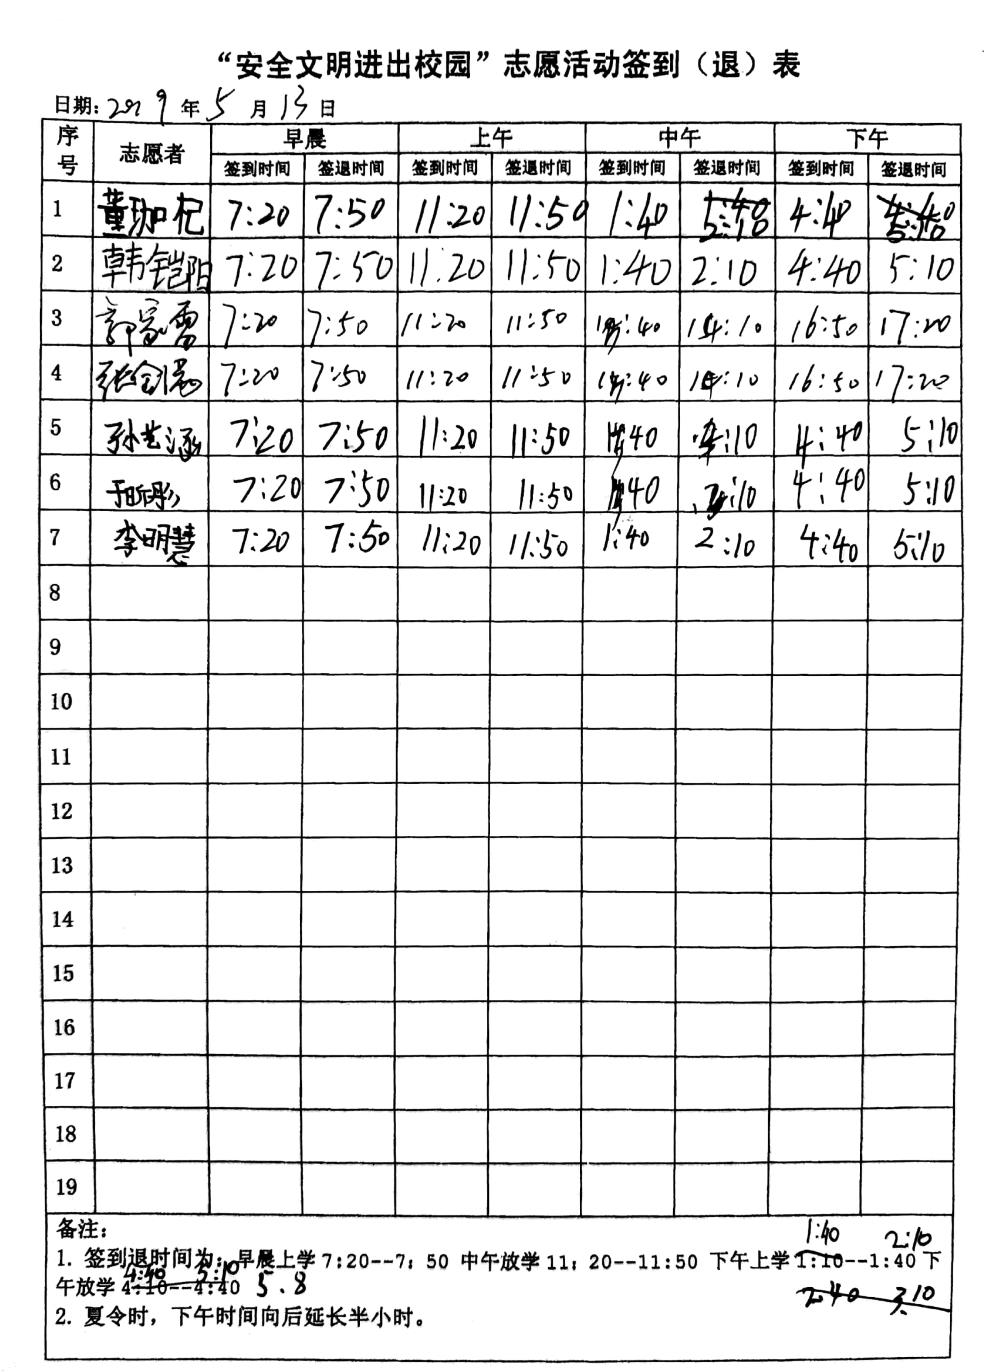 “安全文明进出校园”志愿活动签到（退）表
日期: 2019 年 5 月 13 日
序号 志愿者 早晨 上午 中午 下午
签到时间 签退时间 签到时间 签退时间 签到时间 签退时间 签到时间 签退时间
1 董珈杞 7:20 7:50 11:20 11:50 1:40 2:10 4:40 5:10
2 韩铠阳 7:20 7:50 11:20 11:50 1:40 2:10 4:40 5:10
3 郭家雷 7:20 7:50 11:20 11:50 13:40 14:10 16:50 17:20
4 7:20 7:50 11:20 11:50 13:40 14:10 16:50 17:20
5 孙艺涵 7:20 7:50 11:20 11:50 1:40 2:10 4:40 5:10
6 于昕彤 7:20 7:50 11:20 11:50 1:40 2:10 4:40 5:10
7 李明慧 7:20 7:50 11:20 11:50 1:40 2:10 4:40 5:10
8
9
10
11
12
13
14
15
16
17
18
19
备注：
1:40 2:10
1. 签到退时间为：早晨上学 7:20--7：50 中午放学 11：20--11:50 下午上学 1:10--1:40 下
4:40 5:10
午放学 4:10--4:40 5.8
2:40 3:10
2. 夏令时，下午时间向后延长半小时。